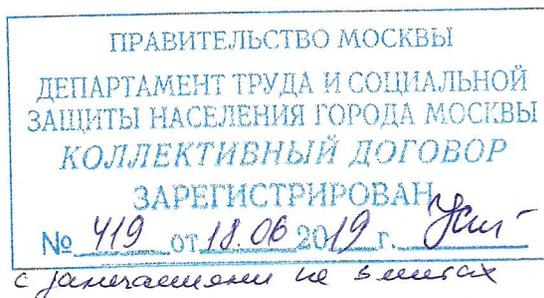 ПРАВИТЕЛЬСТВО МОСКВЫ
ДЕПАРТАМЕНТ ТРУДА И СОЦИАЛЬНОЙ
ЗАЩИТЫ НАСЕЛЕНИЯ ГОРОДА МОСКВЫ
КОЛЛЕКТИВНЫЙ ДОГОВОР
ЗАРЕГИСТРИРОВАН
№ 419 от 18.06 2019 г.
с замечаниями на листах